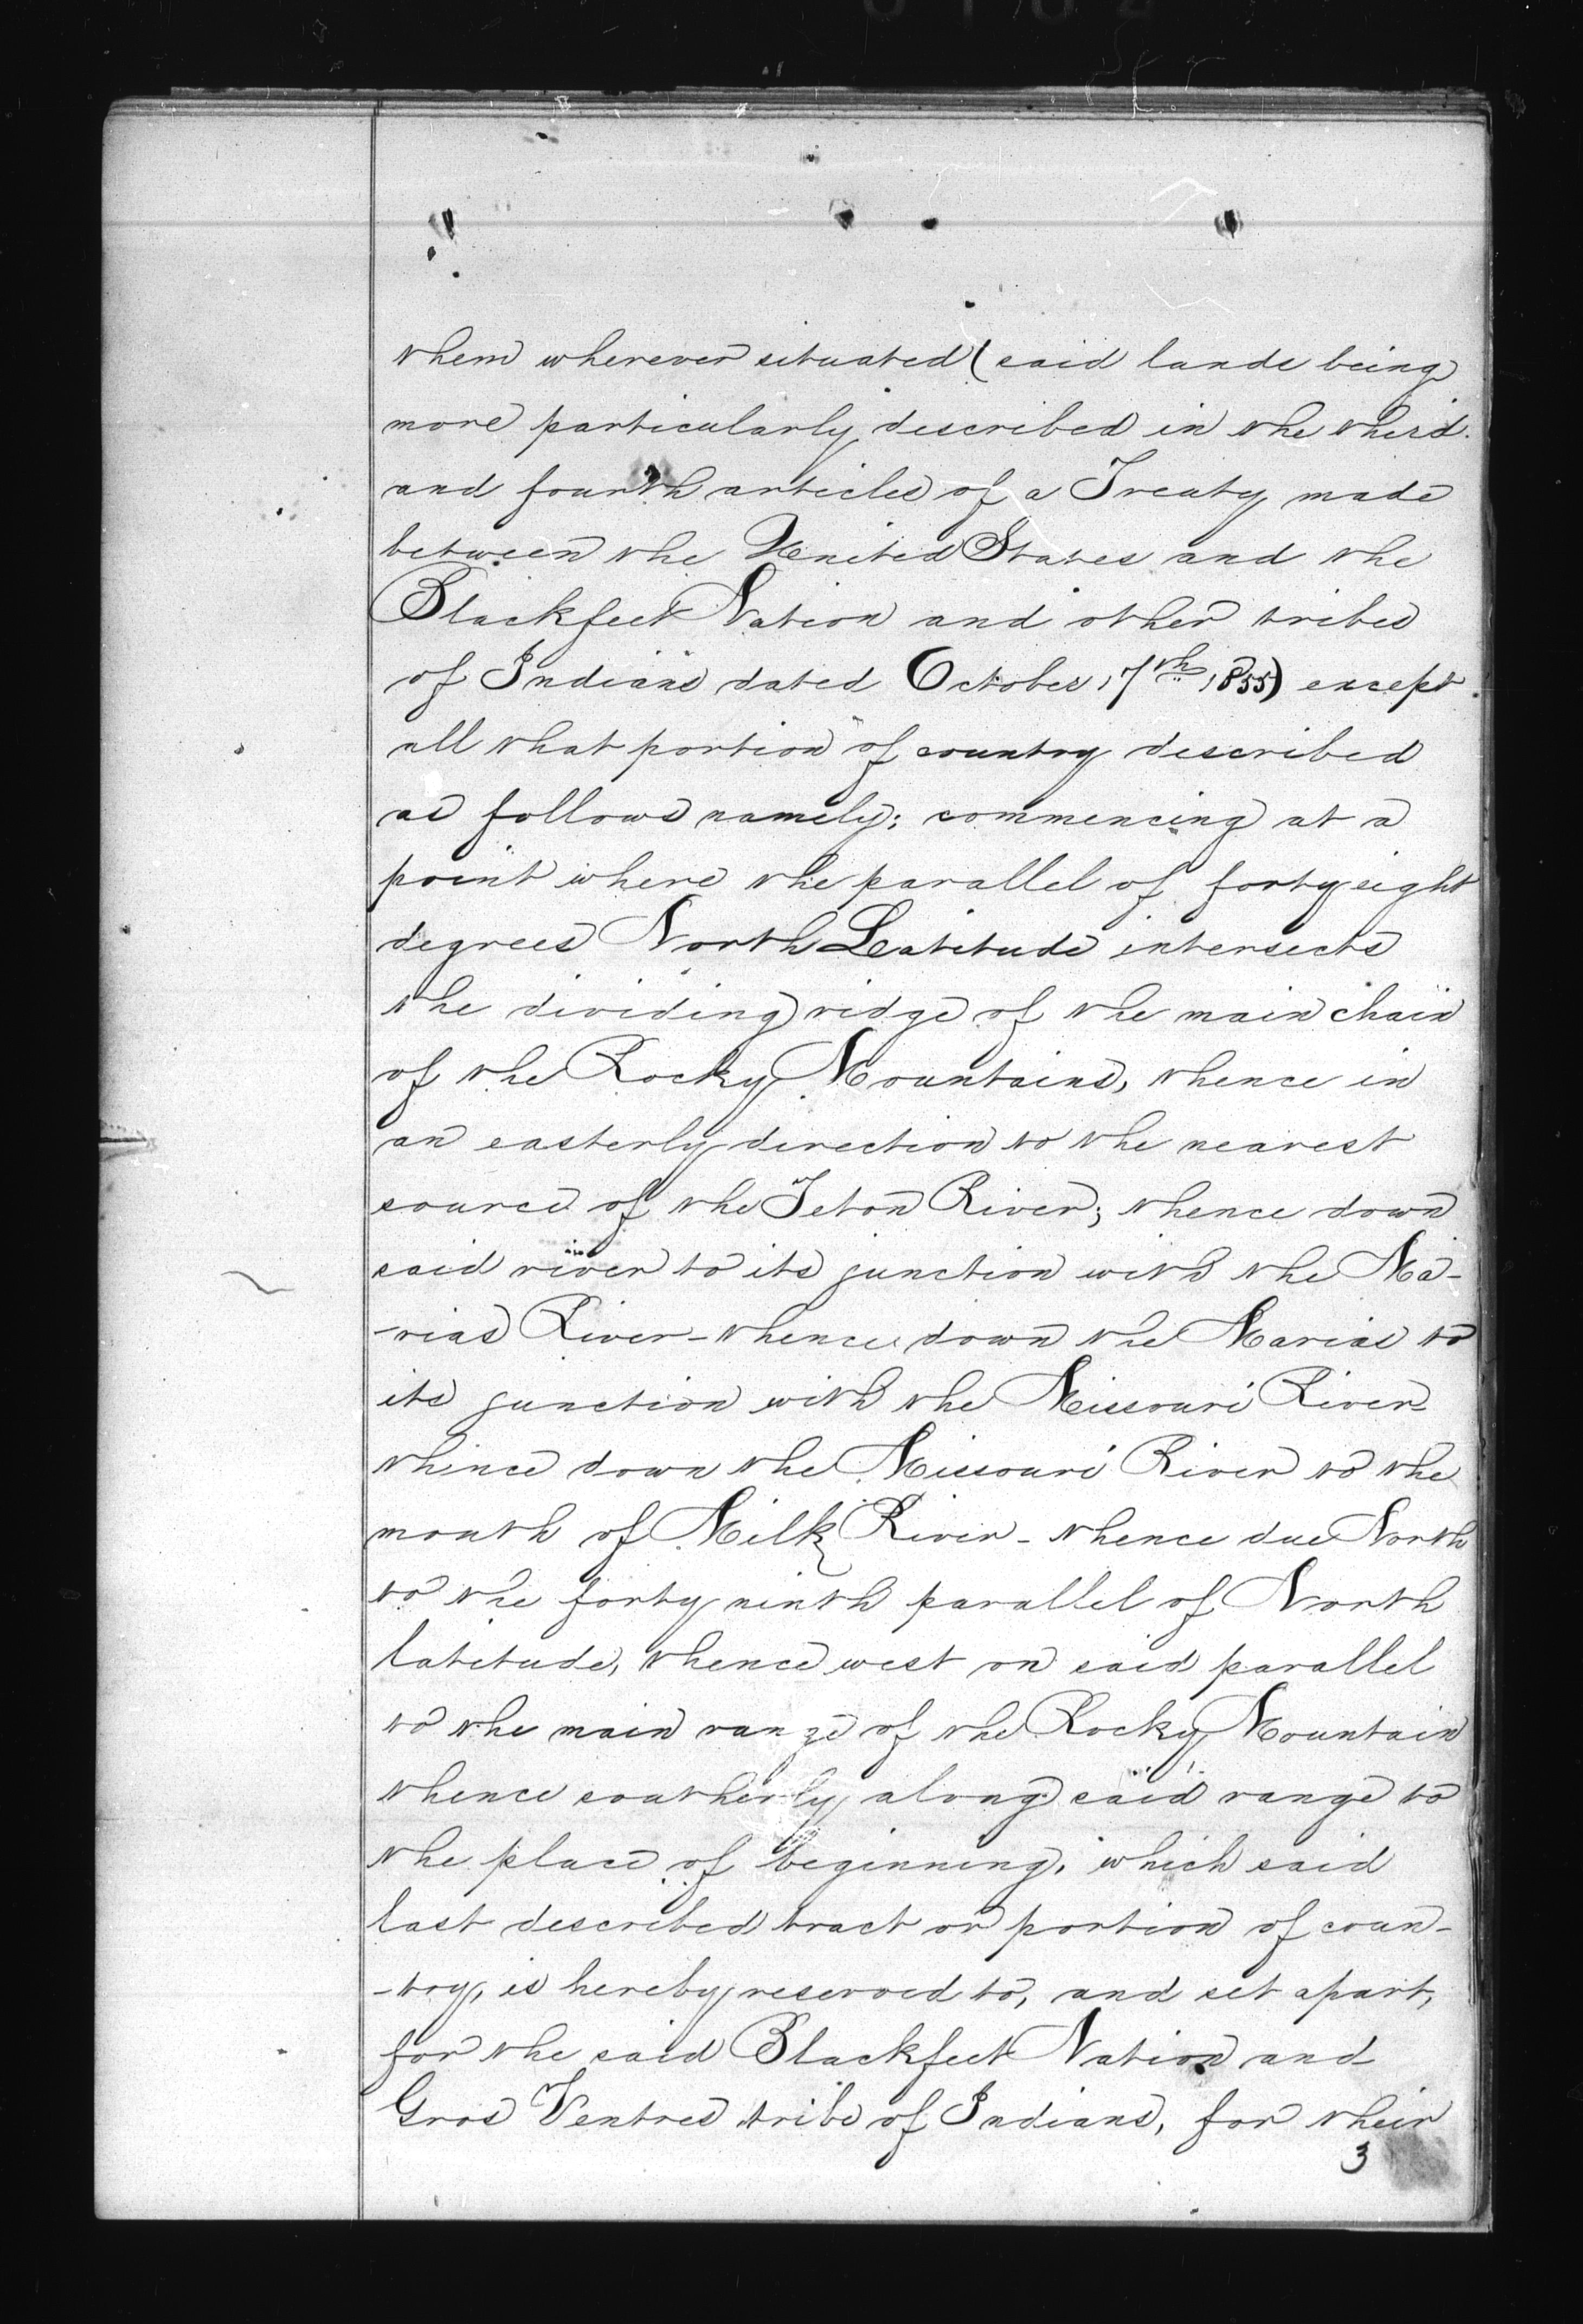 them wherever situated (said lands being
more particularly described in the third
and fourth articles of a Treaty made
between the United States and the
Blackfeet Nation and other tribes
of Indians dated October 17th 1855) except
all that portion of country described
as follows namely; commencing at a
point where the parallel of forty eight
degrees North Latitude intersects
the dividing ridge of the main chain
of the Rocky Mountains, thence in
an easterly direction to the nearest
source of the Teton River; thence down
said river to its junction with the Ma-
-rias River - thence down the Marias to
its junction with the Missouri River -
thence down the Missouri River to the
mouth of Milk River - thence due North
to the forty ninth parallel of North
latitude, thence west on said parallel
to the main range of the Rocky Mountain
thence southerly along said range to
the place of beginning, which said
last described tract or portion of coun-
-try, is hereby reserved to, and set apart,
for the said Blackfeet Nation and
Gros Ventres tribe of Indians, for their
3